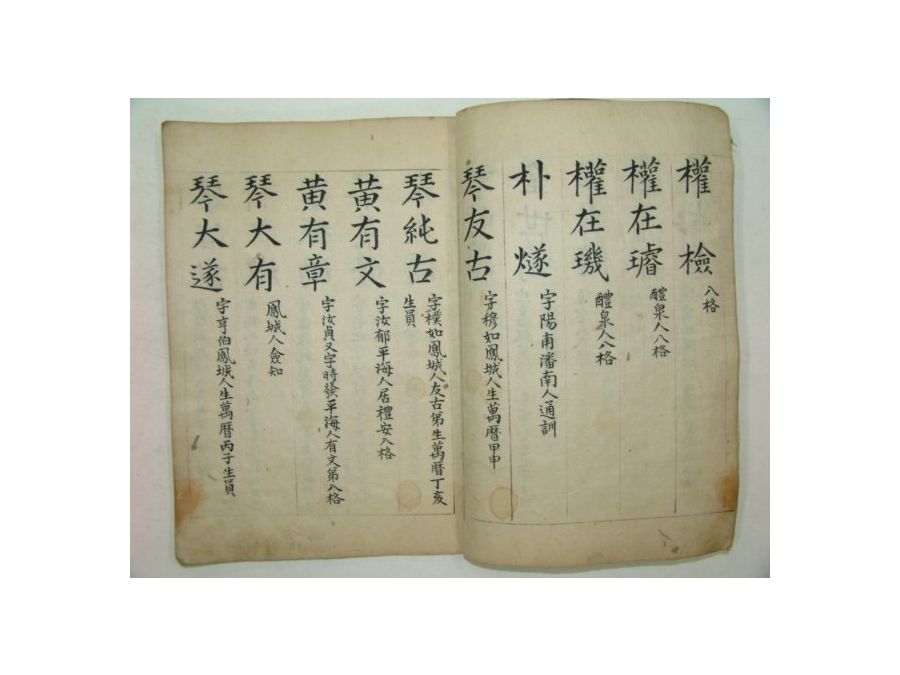 權檢 入格
權在璿 醴泉人入格
權在璣 醴泉人入格
朴燧 字陽甫潘南人通訓
琴友古 字穆如鳳城人生萬曆甲申
琴純古 字樸如鳳城人友古弟生萬曆丁亥
生員
黃有文 字汝郁平海人居禮安入格
黃有章 字汝貞又字時發平海人有文弟入格
琴大有 鳳城人僉知
琴大遂 字亨伯鳳城人生萬曆丙子生員